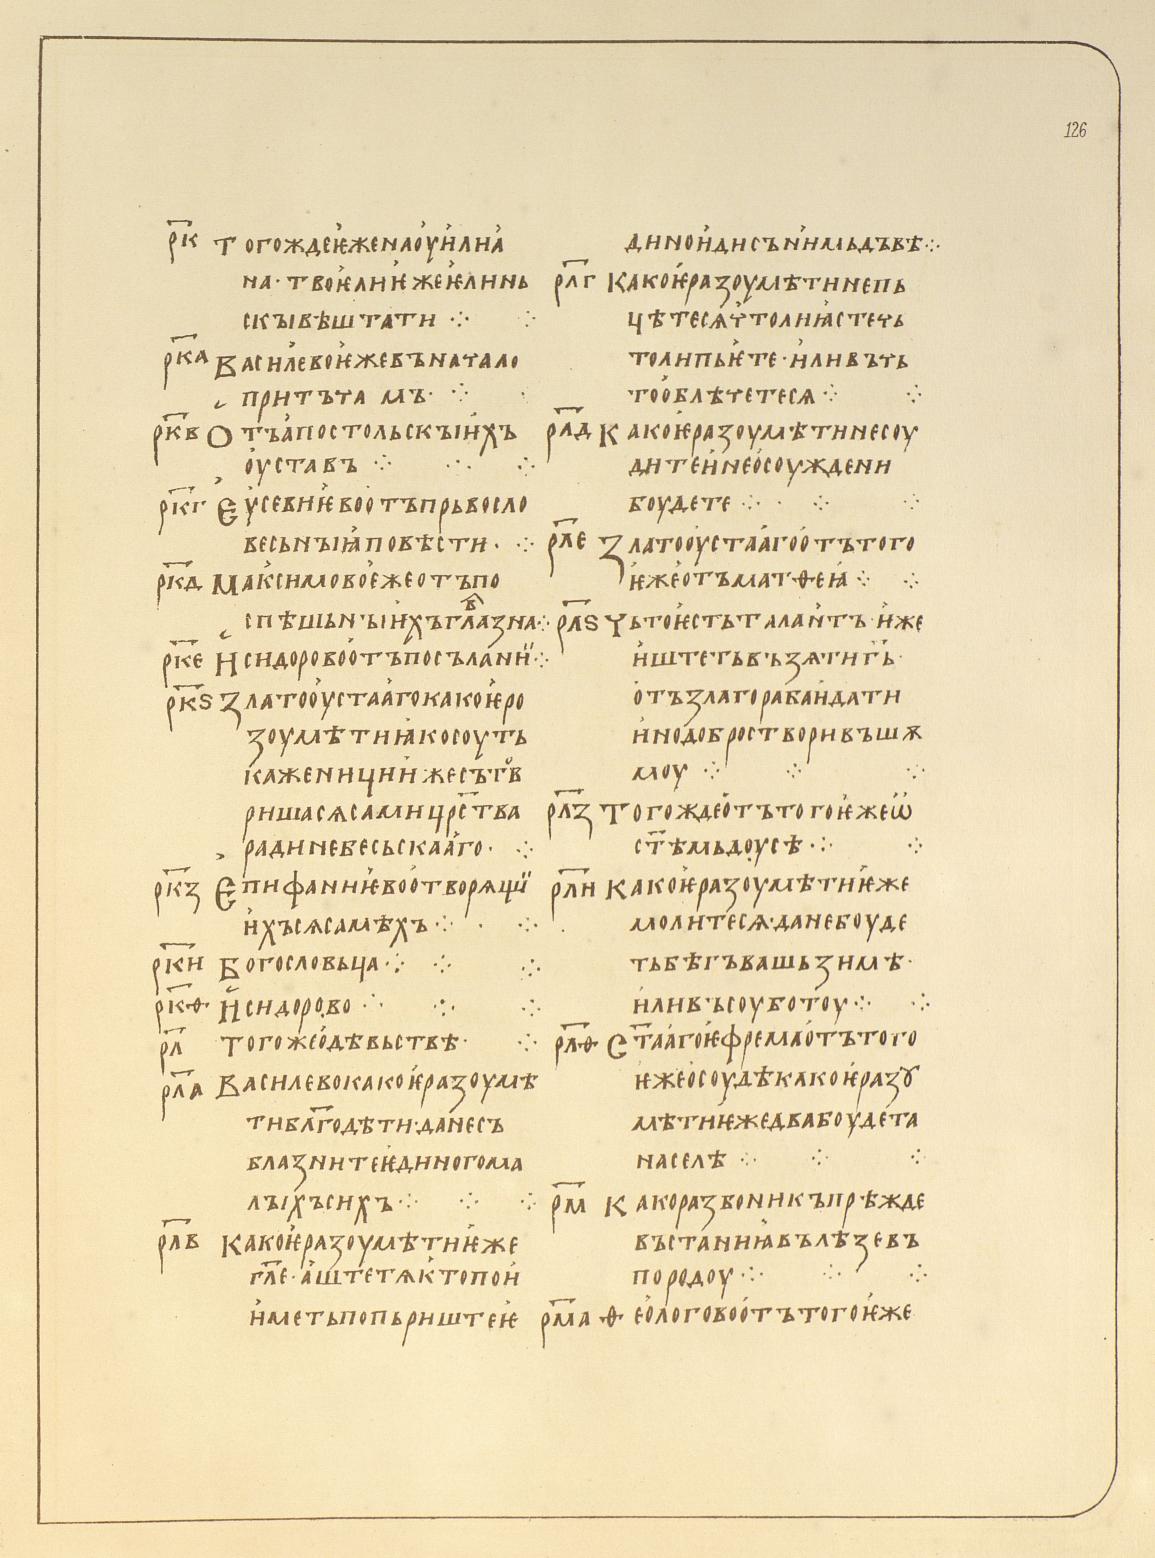 126
р҃к Тогождеѥженаоучилиꙗ
на· твоѥлиѥжеѥлинь
скꙑвѣштати ⁘ ⁘
р҃ка Василевоѥжевъначало
притъча мъ· ⁘
р҃кв Отъапостольскꙑихъ
оуставъ ⁘ ⁘ ⁘
р҃кг Еусевиѥвоотъпрьвосло
весьнꙑꙗповѣсти· ⁘
р҃кд Максимовоежеотъпо
спѣшьнꙑихъглавⷡ҇азна⁘
р҃ке Исидоровоотъпосълании⁘
р҃кѕ Златооустаагокакоѥро
зоумѣтиꙗкосоуть
каженициижесѫтв
ришасѧсамицрс҃тва
радинебесьскааго· ⁘
р҃кз Епифаниѥвоотворѧщии
ихъсѧсамѣхъ⁘ · ⁘
р҃ки Богословьца⁘ ⁘ ⁘
р҃кѳ Исидорово ⁘ ⁘ ⁘
р҃л Тогожеодѣвьствѣ· ⁘
р҃ла Василевокакоѥразоумѣ
тибл҃годѣти·данесъ
блазнитеѥдиногома
лꙑхъсихъ⁘ ⁘ ⁘
р҃лв Какоѥразоумѣтиѥже
гл҃е·аштетѧктопои
иметьпопьриштеѥ
диноидисънимьдъвѣ⁘
р҃лг Какоѥразоумѣтинепь
цѣтесѧчтолиꙗстечь
толипьѥте·иливъчь
тооблѣчетесѧ⁘ ⁘
р҃лд Какоѥразоумѣтинесоу
дитеинеосоуждени
боудете ⁘ ⁘ ⁘
р҃ле Златооустааготътого
ѥжеотъматѳеꙗ⁘ ⁘
р҃лѕ Чьтоѥстьталантъ·иже
иштетьвъзѧтиг҃ь·
отъзлагорабаидати
инодобростворивъшѫ
моу ⁘ ⁘ ⁘
р҃лз Тогождеотътогоѥжеѡ
ст҃ѣмьдоусѣ·⁘ ⁘
р҃ли Какоѥразоумѣтиѥже
молитесѧ·данебоуде
тьбѣгъвашьзимѣ·
иливъсоуботоу⁘ ⁘
р҃лѳ Ст҃аагоѥфремаотътого
ѥжеосоудѣкакоѥразꙋ
мѣтиѥжедвабоудета
населѣ ⁘ ⁘ ⁘
р҃м Какоразвоникъпрѣжде
въстаниꙗвълѣзевъ
породоу⁘ ⁘ ⁘
р҃ма Ѳеологовоотътогоѥже